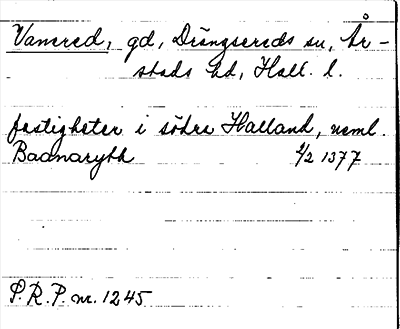 Vanered, gd, Drängsereds sn, År-
stads hd, Hall. l.
fastigheter i södra Halland, neml.
Baanarydh 4/2 1377
S.R.P. nr. 1245